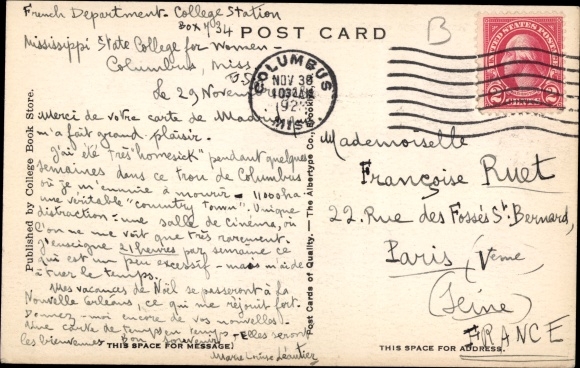 French Department - College Station
Box 434
POST CARD
Mississippi State College for Women -
Columbus, Miss
U.S.
Le 29 Novembre
Merci de votre carte de Madrid
m'a fait grand plaisir.
J'ai été très "homesick" pendant quelques
semaines dans ce trou de Columbus
où je m'ennuie à mourir - 11000 ha
une véritable "country town". Unique
distraction: une salle de cinéma, où
l'on ne me voit que très rarement.
J'enseigne 21 heures par semaine ce
qui est un peu excessif - mais m'aide
à tuer le temps.
Mes vacances de Noël se passeront à la
Nouvelle Orléans, ce qui me réjouit fort.
Donnez-moi encore de vos nouvelles.
Une carte de temps en temps - Elles seront
les bienvenues. Bon souvenir -
Marie Louise Léautiez
THIS SPACE FOR MESSAGE.
Published by College Book Store.
Post Cards of Quality. — The Albertype Co., Brooklyn
COLUMBUS
NOV 30
10 AM
192
MISS.
B
UNITED STATES POSTAGE
2 CENTS 2
Mademoiselle
Françoise Ruet
22. Rue des Fossés St. Bernard,
Paris Vème
(Seine)
FRANCE
THIS SPACE FOR ADDRESS.